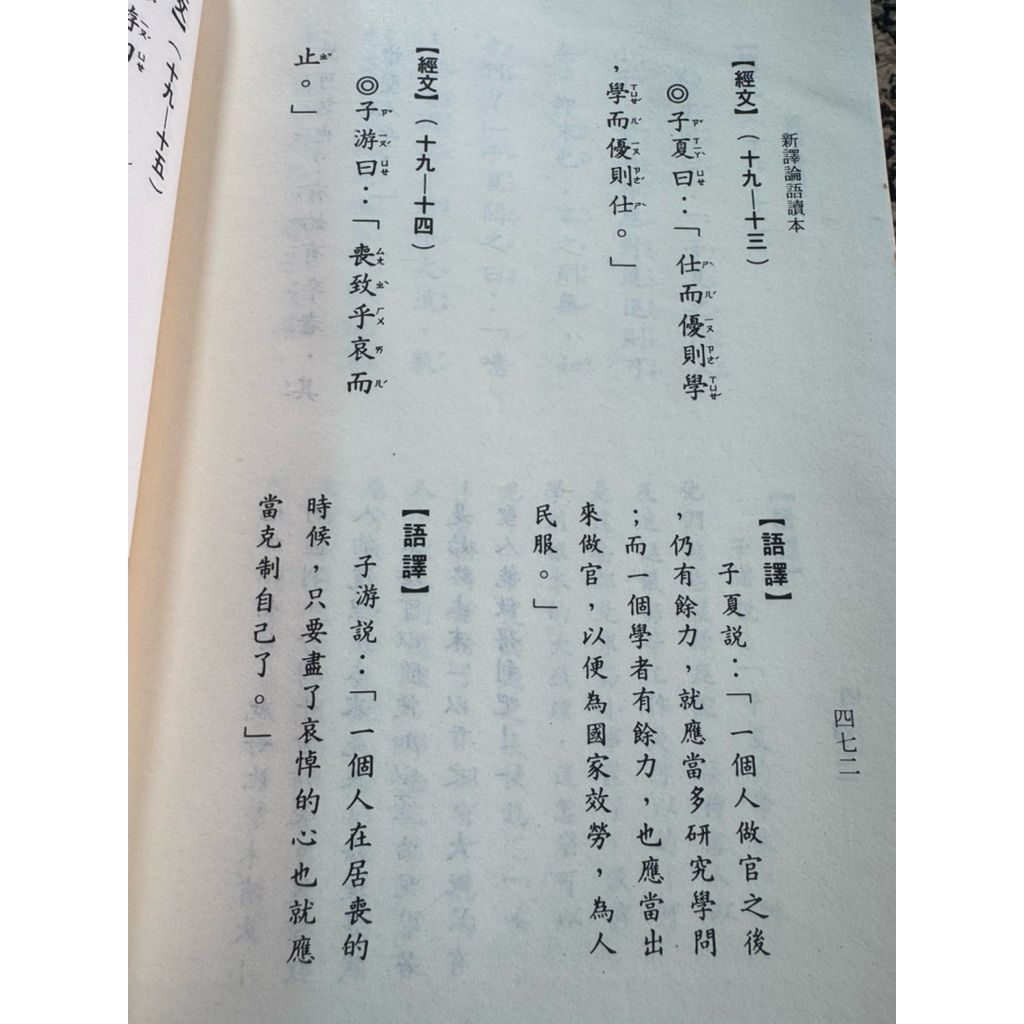 新譯論語讀本
四七二
【經文】(十九—十三)
◎子夏曰：「仕而優則學
，學而優則仕。」
【語譯】
子夏說：「一個人做官之後
，仍有餘力，就應當多研究學問
；而一個學者有餘力，也應當出
來做官，以便為國家效勞，為人
民服。」
【經文】(十九—十四)
◎子游曰：「喪致乎哀而
止。」
【語譯】
子游說：「一個人在居喪的
時候，只要盡了哀悼的心也就應
當克制自己了。」
(十九—十五)